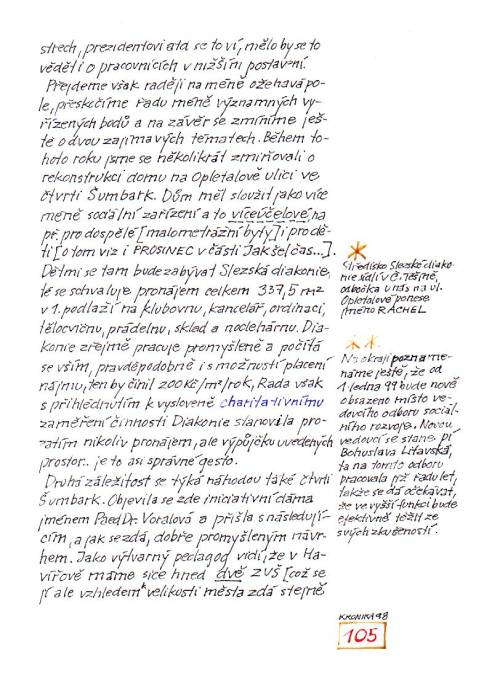 strech, prezidentovi atd se to ví, mělo by se to
věděti o pracovnících v nižším postavení.
Přejdeme však raději na méně ožehavá po-
le, přeskočíme řadu méně významných vy-
řízených bodů a na závěr se zmíníme ješ-
tě o dvou zajímavých tématech. Během to-
hoto roku jsme se několikrát zmiňovali o
rekonstrukci domu na Opletalově ulici ve
čtvrti Šumbark. Dům měl sloužit jako více
méně sociální zařízení a to víceúčelové, na
př. pro dospělé [malometrážní byty] i pro dě-
ti [o tom viz i PROSINEC v části Jak šel čas...].
Dětmi se tam bude zabývat Slezská diakonie,
té se schvaluje pronájem celkem 337,5 m²
v 1. podlaží na klubovnu, kancelář, ordinaci,
tělocvičnu, prádelnu, sklad a noclehárnu. Dia-
konie zřejmě pracuje promyšleně a počítá
se vším, pravděpodobně i s možností placení
nájmu, ten by činil 200 Kč/m²/rok, Rada však
s přihlédnutím k vysloveně charitativnímu
zaměření činnosti Diakonie stanovila pro-
zatím nikoliv pronájem, ale výpůjčku uvedených
prostor.. je to asi správné gesto.
Druhá záležitost se týká náhodou také čtvrti
Šumbark. Objevila se zde iniciativní dáma
jménem PaedDr. Voralová a přišla s následují-
cím, a jak se zdá, dobře promyšleným návr-
hem. Jako výtvarný pedagog vidí, že v Ha-
vířově máme sice hned dvě ZUŠ [což se
jí ale vzhledem k velikosti města zdá stejně
*
Středisko Slezské diako-
nie sídlí v Č. Těšíně,
odbočka u nás na ul.
Opletalově ponese
jméno RACHEL
**
Na okraji pozname-
náme ještě, že od
1. ledna 99 bude nově
obsazeno místo ve-
doucího odboru sociál-
ního rozvoje. Novou
vedoucí se stane pí
Bohuslava Litavská,
ta na tomto odboru
pracovala již řadu let,
takže se dá očekávat,
že ve vyšší funkci bude
efektivně těžit ze
svých zkušeností.
KRONIKA 98
105